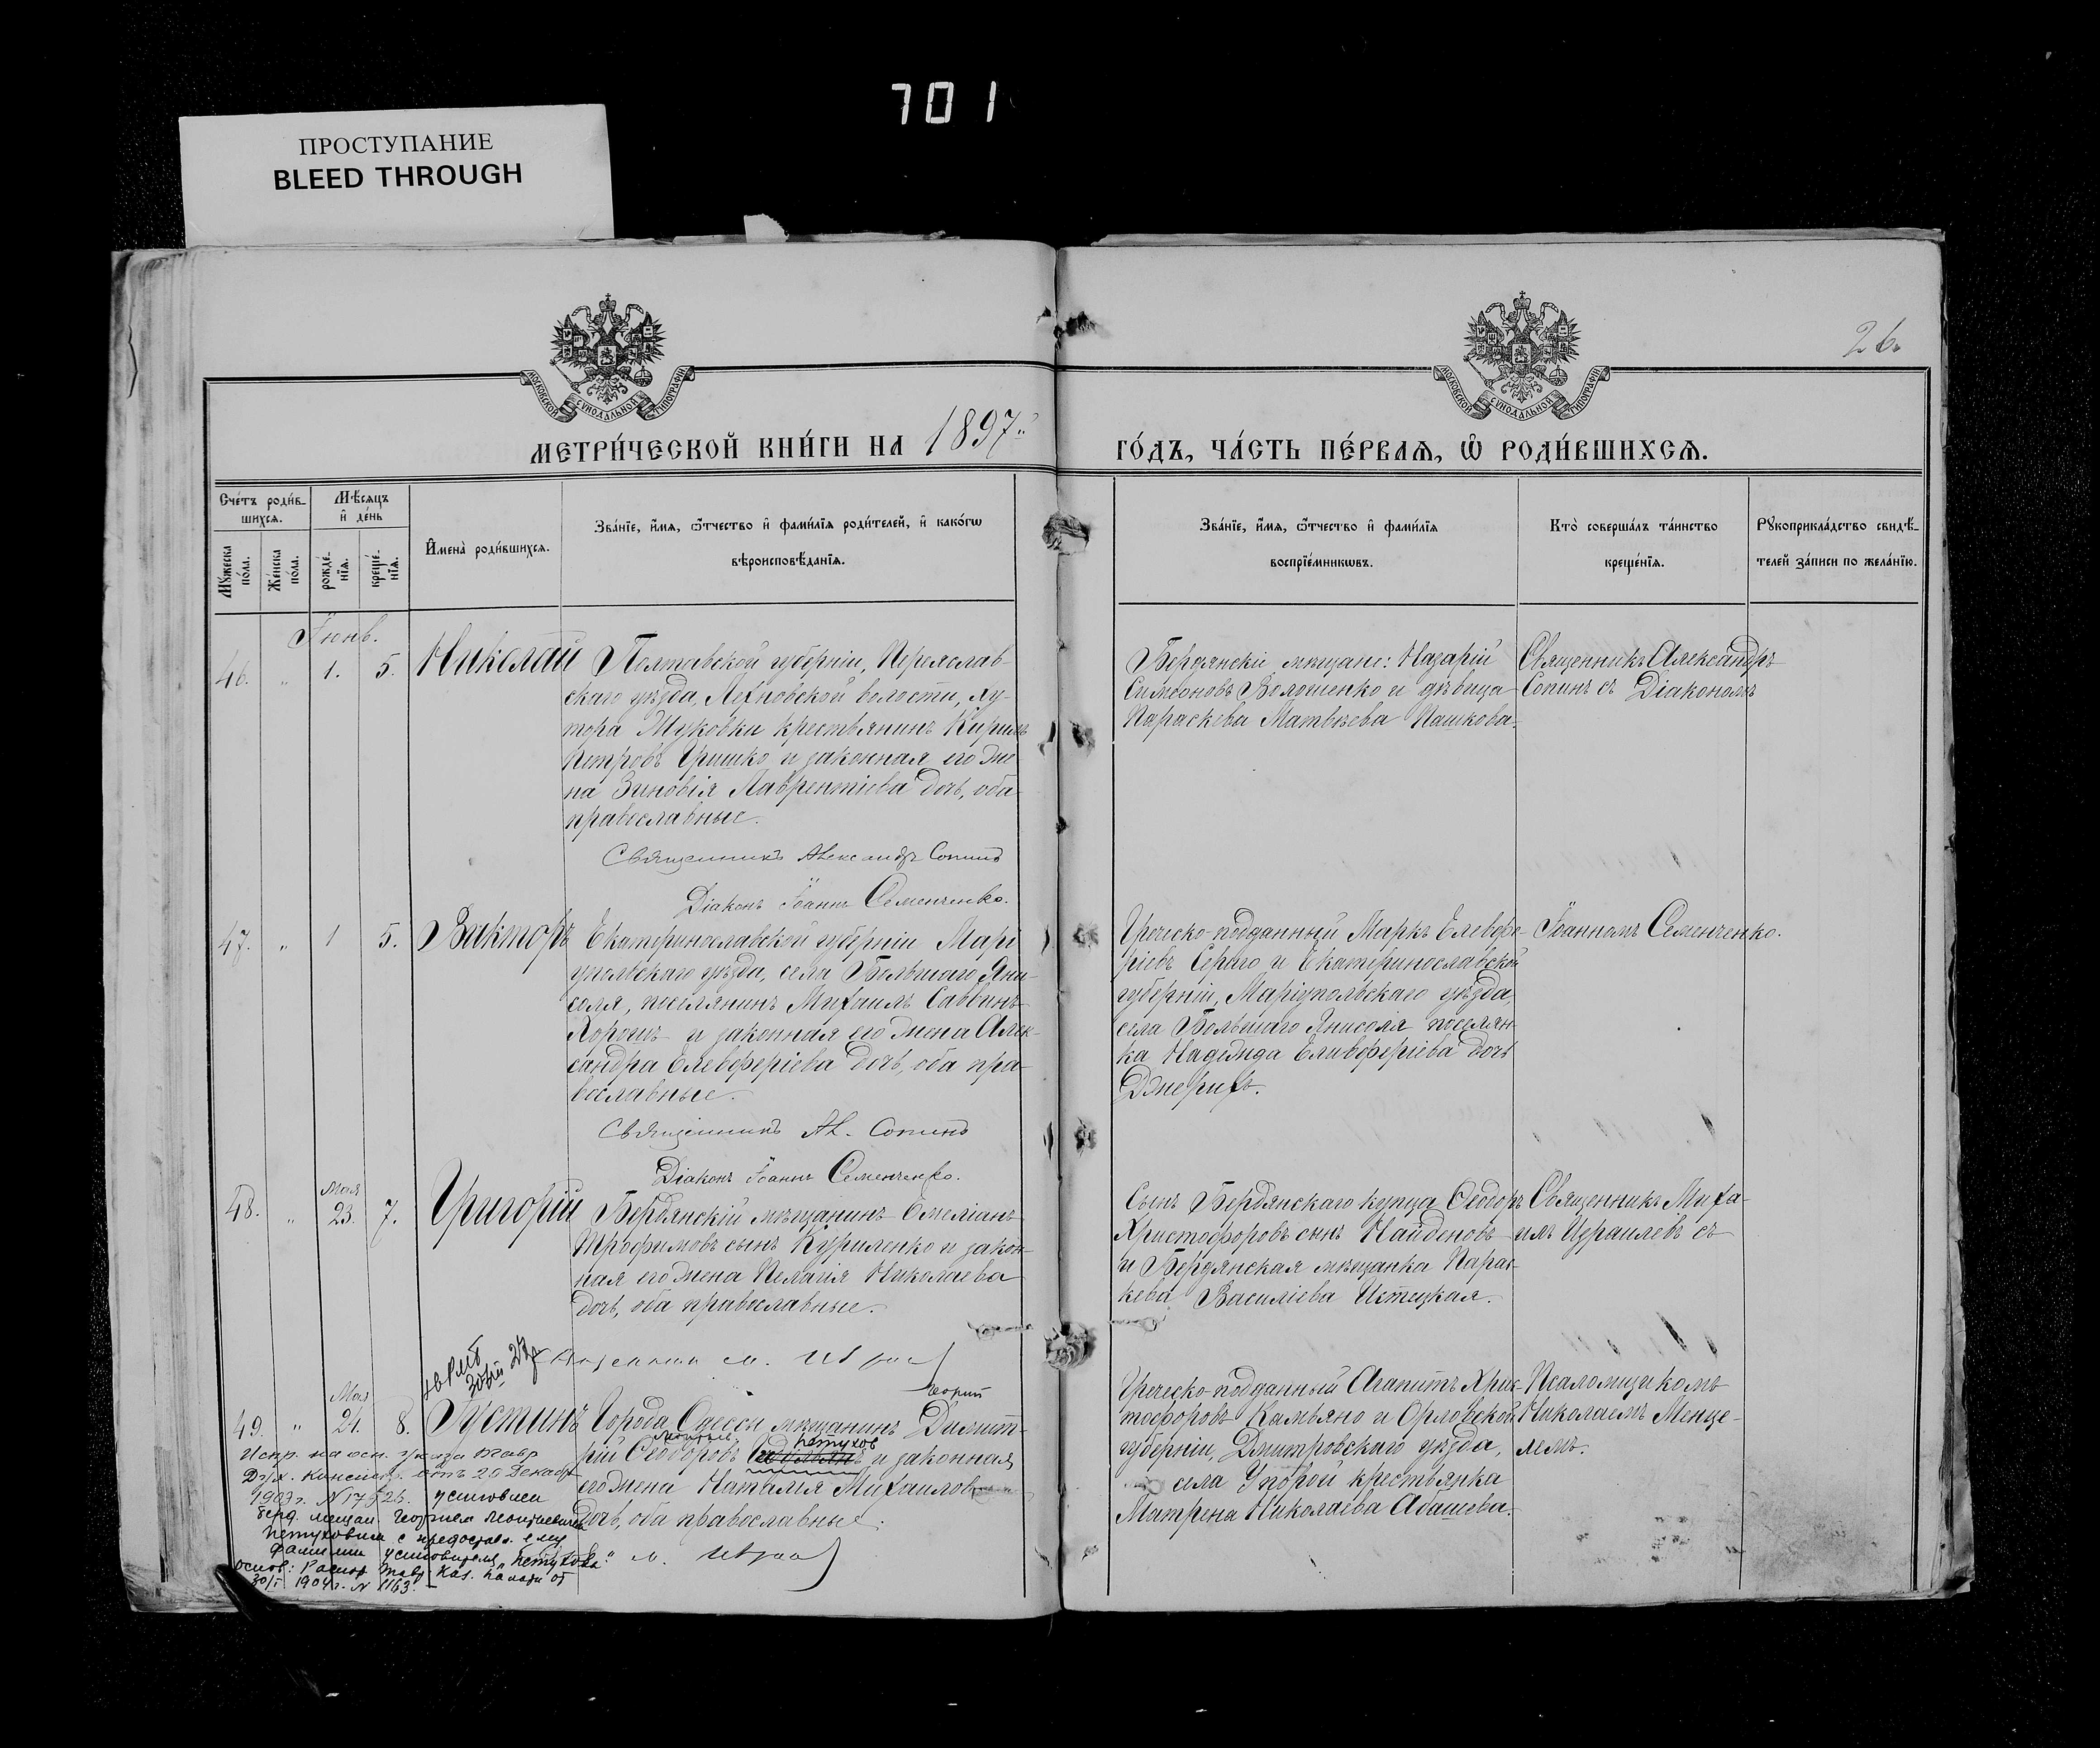 701
ПРОСТУПАНИЕ
BLEED THROUGH
26.
МОСКОВСКОЙ СѴНОДАЛЬНОЙ ТИПОГРАФІИ
МОСКОВСКОЙ СѴНОДАЛЬНОЙ ТИПОГРАФІИ
МЕТРИ́ЧЕСКОЙ КНИ́ГИ НА 1897й ГО́ДЪ, ЧА́СТЬ ПЕ́РВАЯ, Ѡ РОДИ́ВШИХСЯ.
Сче́тъ роди́в-
шихся.
Мѣ́сяцъ
и де́нь
Мꙋ́жеска по́ла.
Же́нска по́ла.
рожде́-нїя.
креще́-нїя.
Имена̀ роди́вшихся.
Зва́нїе, и́мя, ѻ҆́тчество и фами́лїя роди́телей, и како́гѡ
вѣроисповѣ́данїя.
Зва́нїе, и́мя, ѻ҆́тчество и фами́лїя
воспрїе́мникѡвъ.
Кто̀ соверша́лъ та́инство
креще́нїя.
Рꙋкоприкла́дство свидѣ́-
телей за́писи по жела́нїю.
Іюнь.
46. " 1. 5. Николай
Полтавской губерніи, Переяслав-
скаго уѣзда, Лехновской волости, ху-
тора Жуковки крестьянинъ Кирилъ
Петровъ Гришко и законная его же-
на Зиновія Лаврентіева дочь, оба
православные.
Священникъ Александръ Сопинъ
Діаконъ Іоаннъ Семенченко.
Бердянскіе мѣщане: Назарій
Симеоновъ Волошенко и дѣвица
Параскева Матвѣева Пашкова.
Священникъ Александръ
Сопинъ съ Діакономъ
47. " 1 5. Викторъ
Екатеринославской губерніи Марі-
упольскаго уѣзда, села Большаго Яни-
соля, поселянинъ Михаилъ Саввинъ
Хорошъ и законная его жена Алек-
сандра Елевферіева дочь, оба пра-
вославные.
Священникъ Ал. Сопинъ
Діаконъ Іоаннъ Семенченко.
Греческо-подданный Маркъ Елевфе-
ріевъ Сераго и Екатеринославской
губерніи, Маріупольскаго уѣзда,
села Большаго Янисоля поселян-
ка Надежда Еливферіева дочь
Джерихъ.
Іоанномъ Семенченко.
Мая
48. " 23. 7. Григорій
Бердянскій мѣщанинъ Омеліанъ
Трофимовъ сынъ Куриленко и закон-
ная его жена Пелагія Николаева
дочь, оба православные.
Сынъ Бердянскаго купца Ѳеодоръ
Христофоровъ сынъ Найденовъ
и Бердянская мѣщанка Парас-
кева Василіева
Священникъ Миха-
илъ Израилевъ съ
Мая
49. " 24. 8. Густинъ
Города Одессы мѣщанинъ Димит-
рій Ѳеодоровъ Петухов и законная
его жена Наталія Михаилова
дочь, оба православные.
Греческо-подданный Агапитъ Хрис-
тофоровъ Камбяно и Орловской
губерніи, Дмитровскаго уѣзда,
села Упорой крестьянка
Матрена Николаева Абашева.
Псаломщикомъ
Николаемъ Менце-
лемъ.
Испр. на осн. указа Тавр.
Дух. Консист. отъ 20 Декабр.
1903 г. N 17526. усыновлен
Берд. мещан. Георгием Леонтьевичем
Петуховым с предостав. ему
фамилии усыновителя "Петухов".
Основ: Распор Тавр. Каз. Палаты от
30/I 1904 г. N 1163.